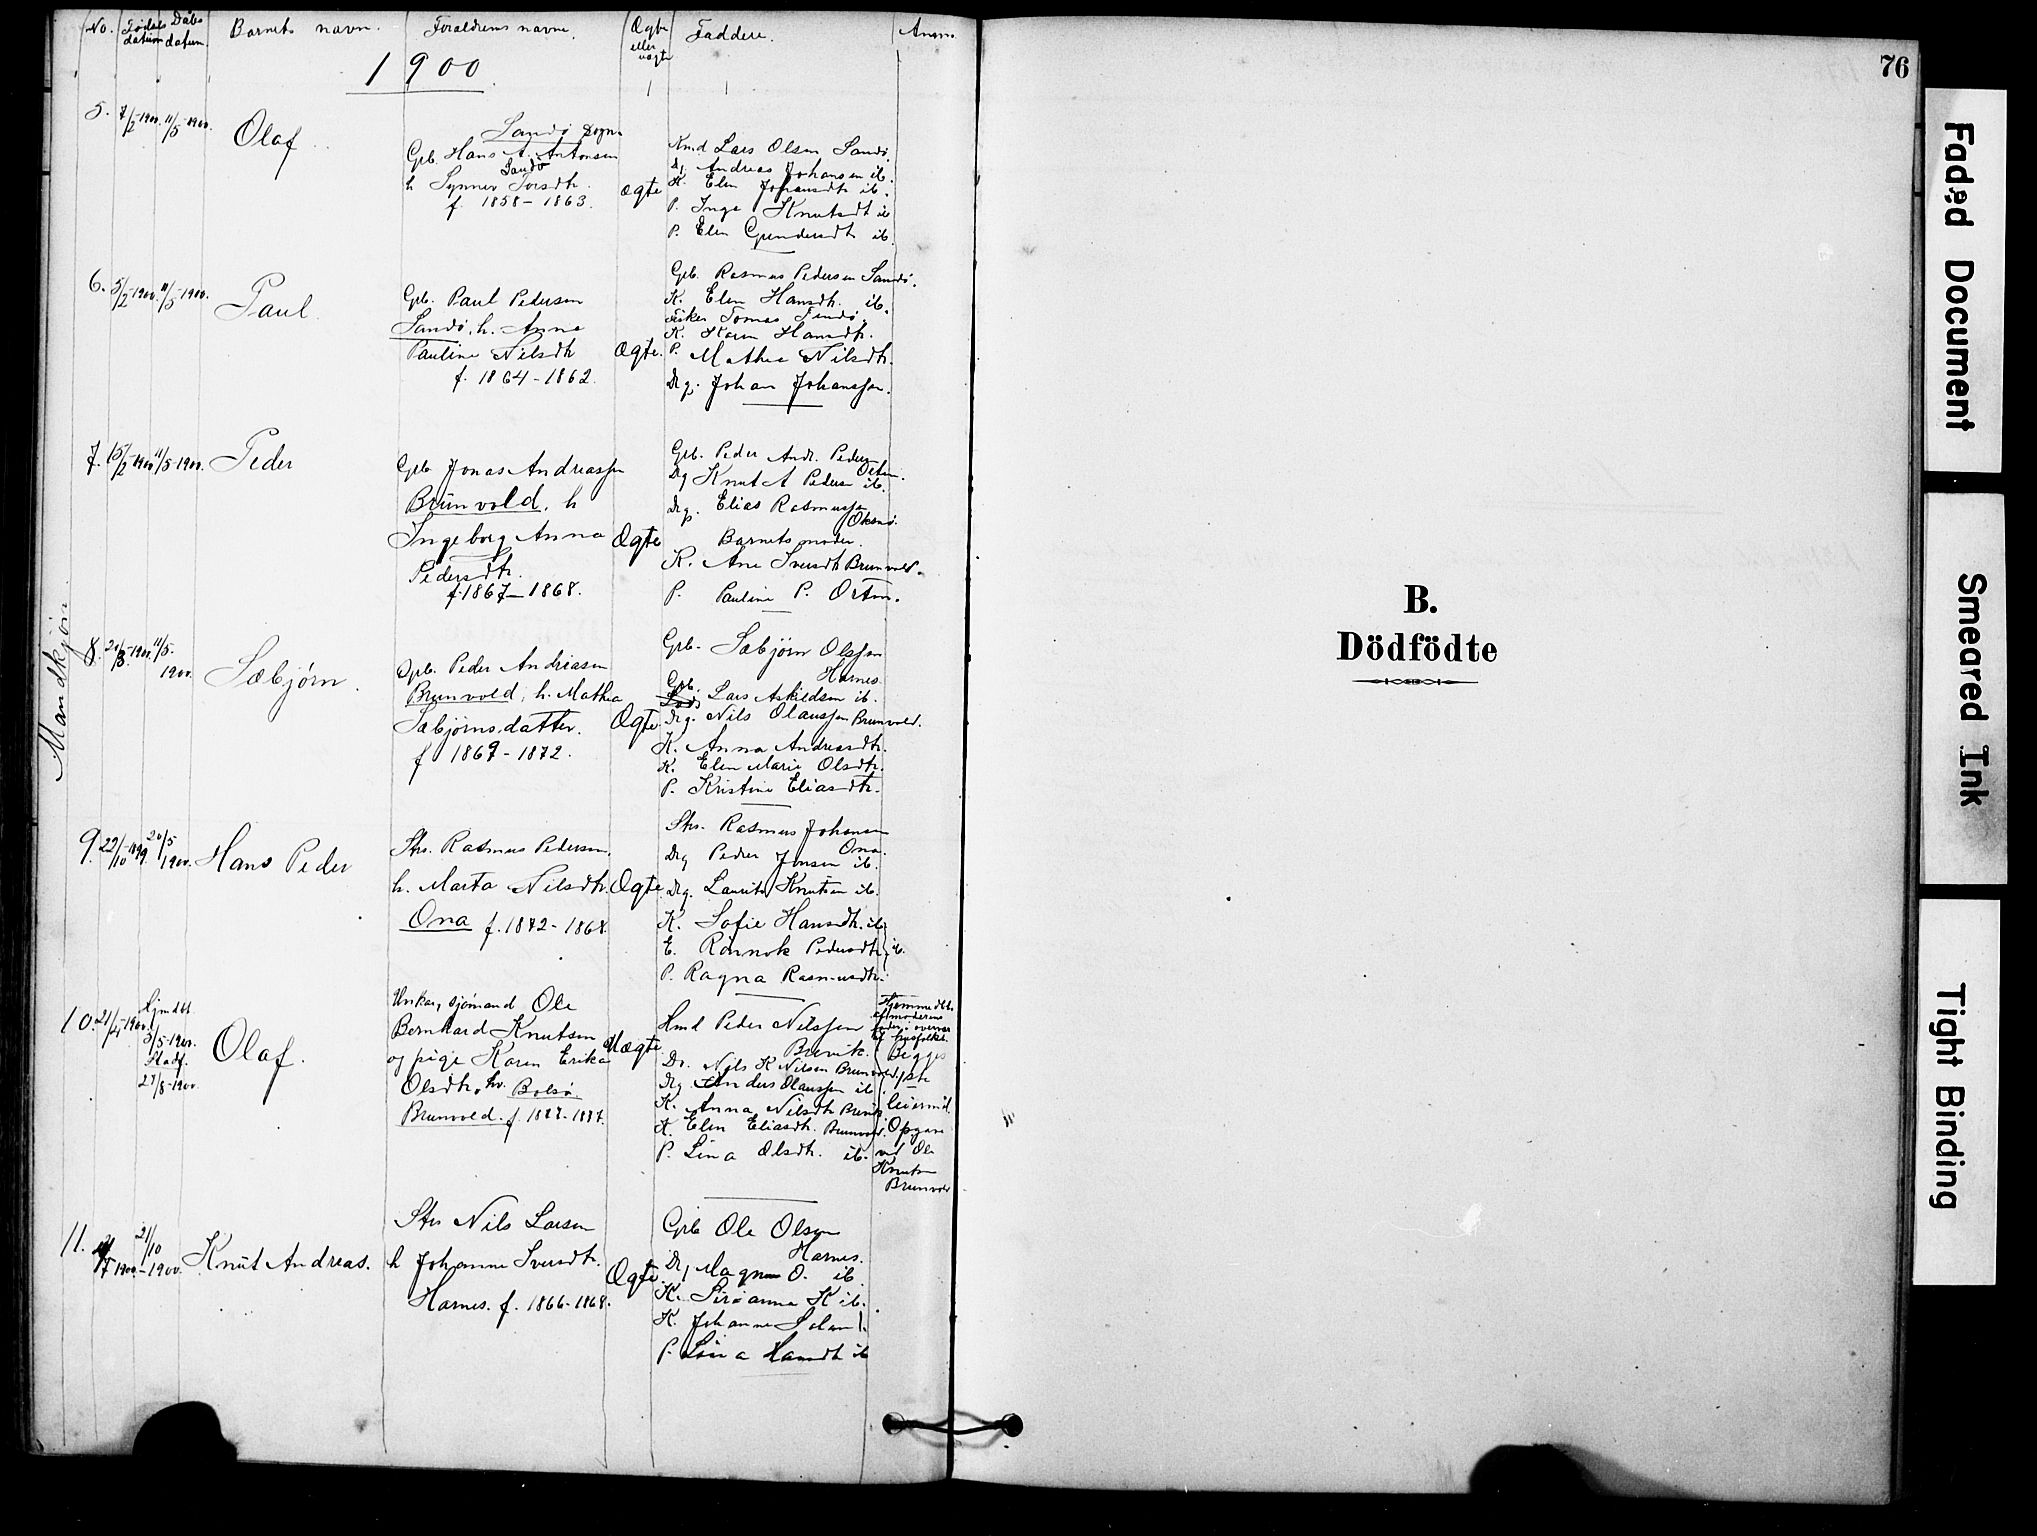 No. Fødsels datum Dåbs datum. Barnets navn. Forældrens navne. Ægte eller uægte Faddere. Anm
1900
Mandkjøn
5. 7/2-1900. 11/5-1900. Olaf
Sandø Sogn
Grb. Hans A. Antonsen
Sandø
h Synnev Torsdtr.
f. 1858-1863.
ægte
Kmd Lars Olsen Sandø.
Drg Andreas Johansen ib.
K. Elen Johansdtr ib.
P. Inge Knutsdt ib
P. Elen Gundersdtr ib.
6. 5/2-1900. 11/5-1900. Paul
Grb. Paul Pedersen
Sandø, h. Anna
Pauline Nilsdtr
f. 1864-1862.
Ægte.
Grb. Rasmus Pedersen Sandø.
K. Elen Hansdtr. ib.
Fisker Tomas
K. Karen Hansdtr.
P. Mathea Nilsdtr.
Drg. Johan Johanssen.
7. 15/2-1900 11/5-1900. Peder
Grb Jonas Andreassen
Brunvold, h
Ingeborg Anna
Pedersdtr.
f. 1867-1868.
Ægte
Grb. Peder Andr. Peders
Orten.
Drg Knut A Pedersen ib.
Drg. Elias Rasmussen
Barnets moder.
K. Ane Iversdtr Brunvold.
P. Pauline P. Orten.
8. 11/5-1900. Sæbjørn.
Grb. Peder Andreasen
Brunvold, h. Mathea
Sæbjørnsdatter.
f 1869-1872.
Ægte
Grb. Sæbjørn Olssen
Harnes.
Grb. Lars Askildsen ib.
Drg. Nils Olaussen Brunvold.
K. Anna Andreasdtr.
K. Elen Marie Olsdtr.
P. Kristine Eliasdtr.
9. 22/10-1899. 20/5 1900. Hans Peder
Shs. Rasmus Pedersen.
h. Marta Nilsdtr.
Ona f. 1872-1868
Ægte
Shs. Rasmus Johansen
Ona.
Drg Peder Jensen ib.
Drg. Laurits Knutsen ib.
K. Sofie Hansdtr. ib
E. Rønnok Pedersdtr ib.
P. Ragna Rasmusdtr.
10. 21/4-1900. Hjmdbt. 3/5-1900. Stadf. 27/8-1900. Olaf.
Unkar, sjømand Ole
Bernhard Knutsen
og pige Karen Erika
Olsdtr, hv. Bolsø.
Brunvold. f.
Uægte
Hmd Peder Nilssen
Brevik.
Do. Nils K Nilsen Brunvold
Drg. Anders Olaussen ib
K. Anna Nilsdtr Brevik
K. Elen Eliasdtr. Brunvold.
P. Lina Olsdtr. ib.
Hjemmedbt.
af moderens
fader i overvær
af husfolket.
Begges
1ste
leiermål.
Opgave
ved Ole
Knutsen
Brunvold
11. 1900. 21/10-1900. Knut Andreas.
Str Nils Larsen
h Johanne Iversdtr.
Harnes. f. 1866-1868.
Ægte.
Grb Ole Olsen
Harnes.
Drg Magnus O. ib
K. K ib.
K. Johanne
P. Lina Hansdtr ib
76
B.
Dödfödte
Faded Document
Smeared Ink
Tight Binding